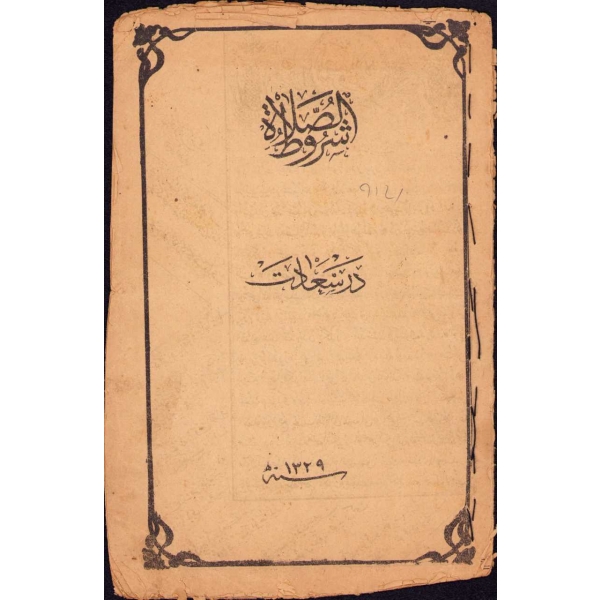 شروط الصلاة
در سعادت
سنه ١٣٢٩